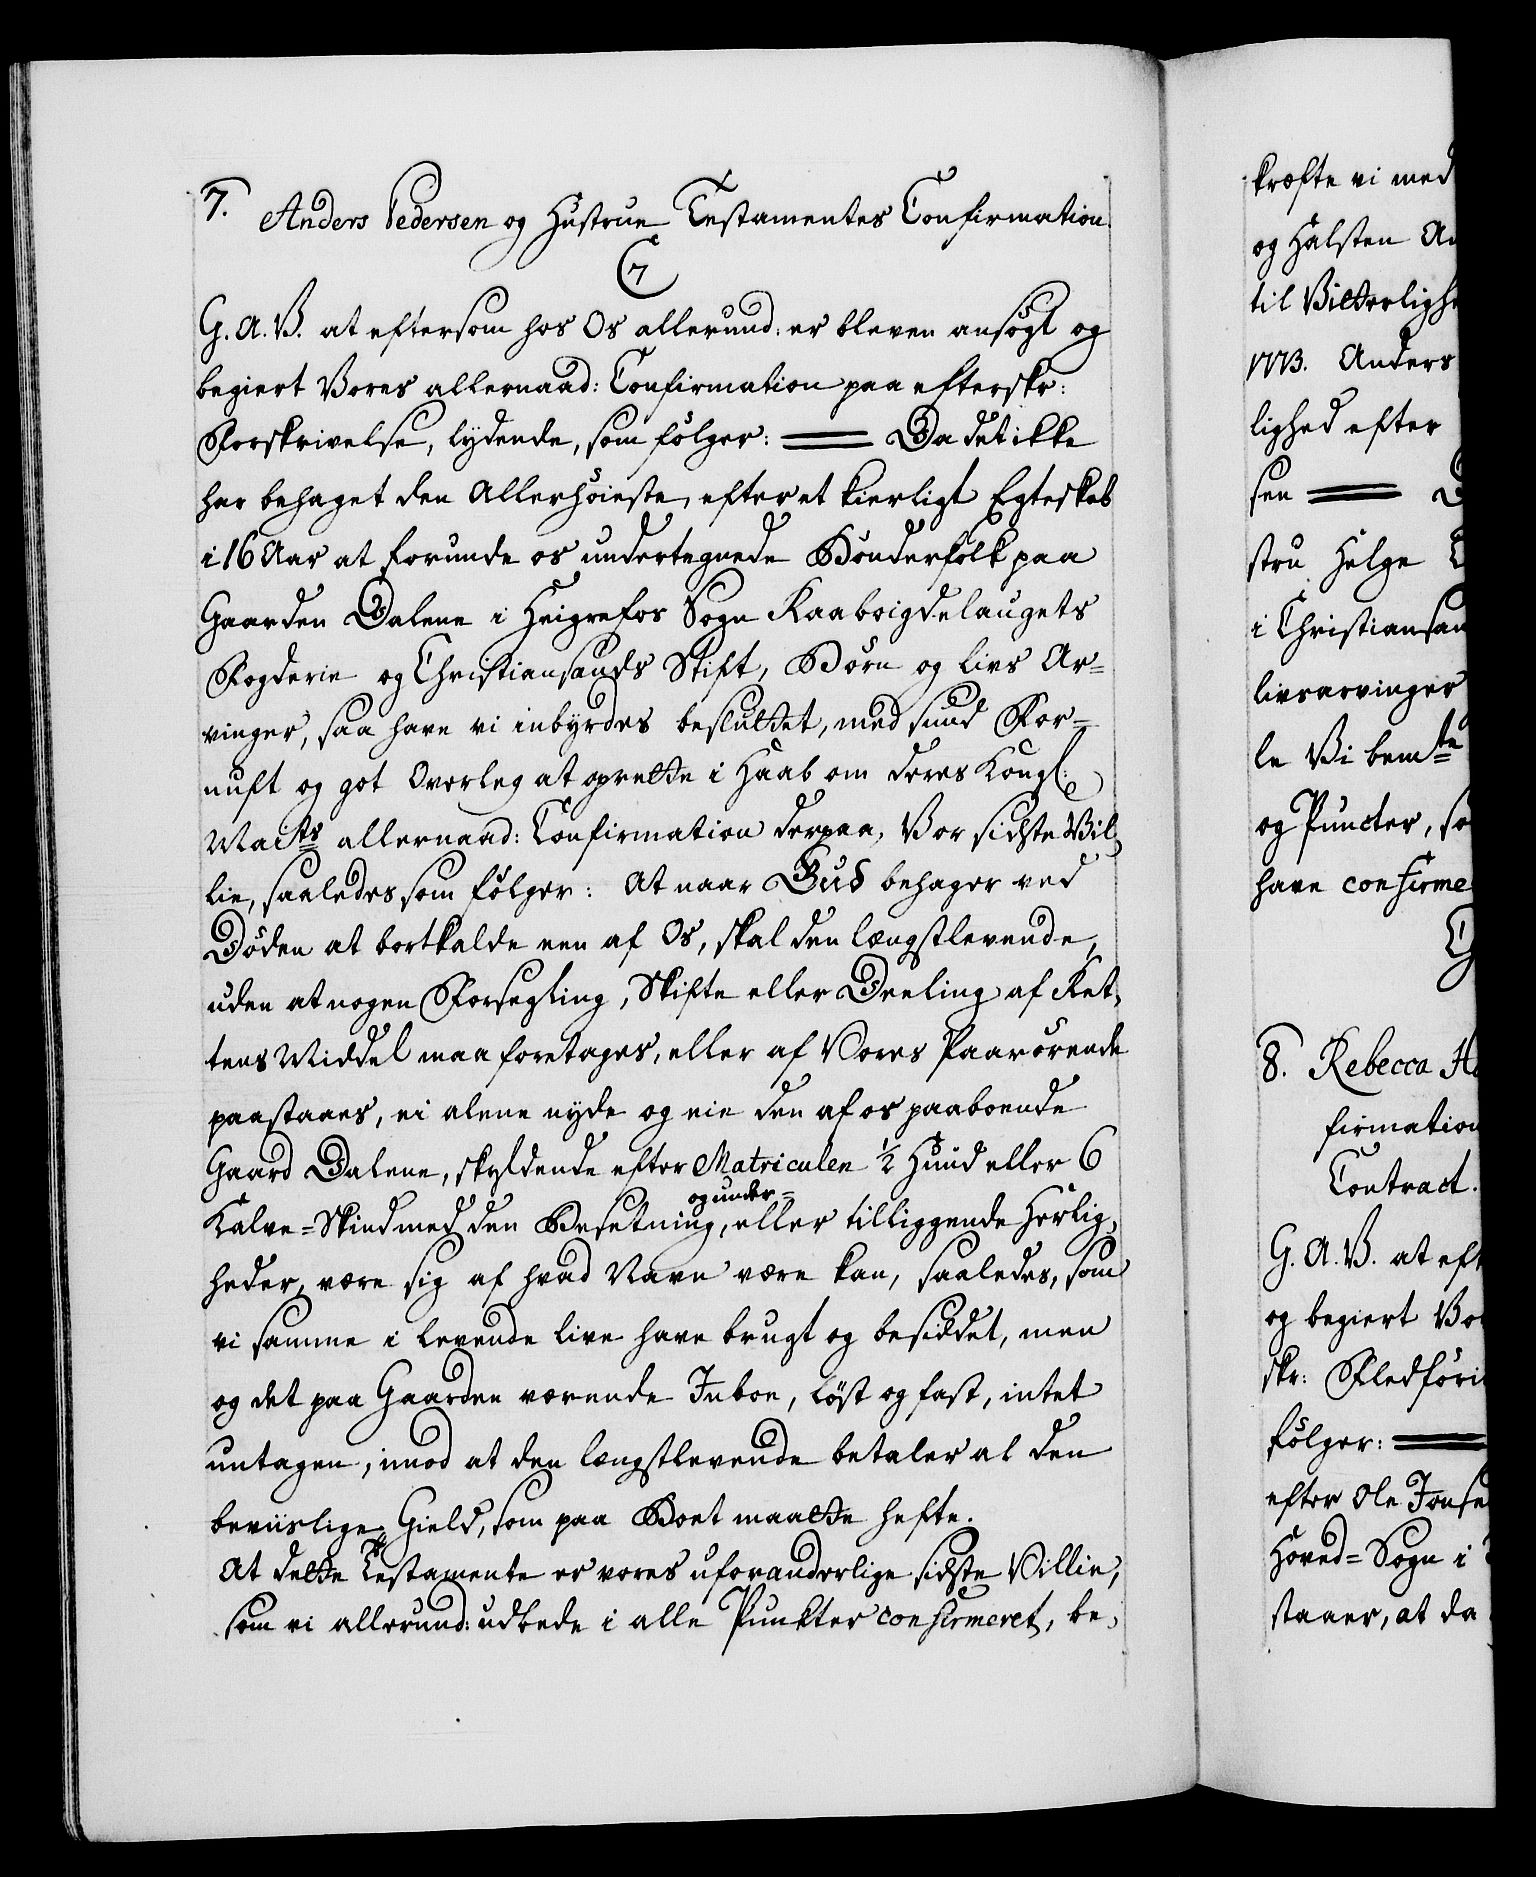 7. Anders Pedersen og Hustrue Testamentes Confirmation
7
G. A. V. at eftersom hos Os allerund: er bleven ansøgt og
begiert Vores allernaad: Confirmation paa efterskr:
Forskrivelse, lydende, som følger: Da det ikke
har behaget den Allerhøieste, efter et kierligt Egteskab
i 16 Aar at forunde os undertegnede Bønderfolk paa
Gaarden Dalene i Heigrefos Sogn Raaboigdelaugets
Fogderie og Christiansands Stift, Børn og livs Ar=
vinger, saa have vi inbyrdes besluttet, med sund For=
nuft og got Overleg at oprette i Haab om deres Kongl:
Maits allernaad: Confirmation derpaa, Vor sidste Vil,
lie, saaledes som følger: At naar Gud behager ved
Døden at bortkalde een af Os, skal den længstlevende,
uden at nogen Forsegling, Skifte eller Deeling af Ret,
tens Middel maa foretages, eller af Vores Paarørende
paastaaes, ei alene nyde og eie den af os paaboende
Gaard Dalene, skyldende efter Matriculen ½ Huud eller 6
og under=
Kalve=Skind med den Besetning, eller tilliggende Herlig,
heder, være sig af hvad Navn være kan, saaledes, som
vi samme i levende live have brugt og besiddet, men
og det paa Gaarden værende Inboe, løst og fast, intet
untagen, imod at den længstlevende betaler al den
beviislige Gield, som paa Boet maatte hefte.
At dette Testamente er vores uforanderlige sidste Villie,
som vi allerund: udbede i alle Punkter confirmeret, be,
kræfte vi med
og Halsten
til Vitterlighe
1773. Anders
lighed efter
sen
stru Helge
i Christiansan
livsarvinger
le Vi bemte
og Puncter, so
have confirme
8. Rebecca
firmation
Contract.
G. A. V. at eft
og begiert Vo
skr: Fledføri
følger:
efter Ole Jonse
Hoved=Sogn i
staaer, at da